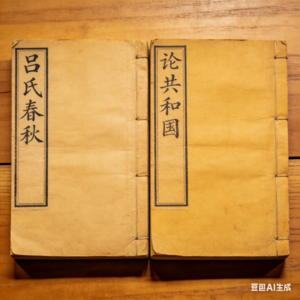 吕氏春秋
论共和国
豆包AI生成